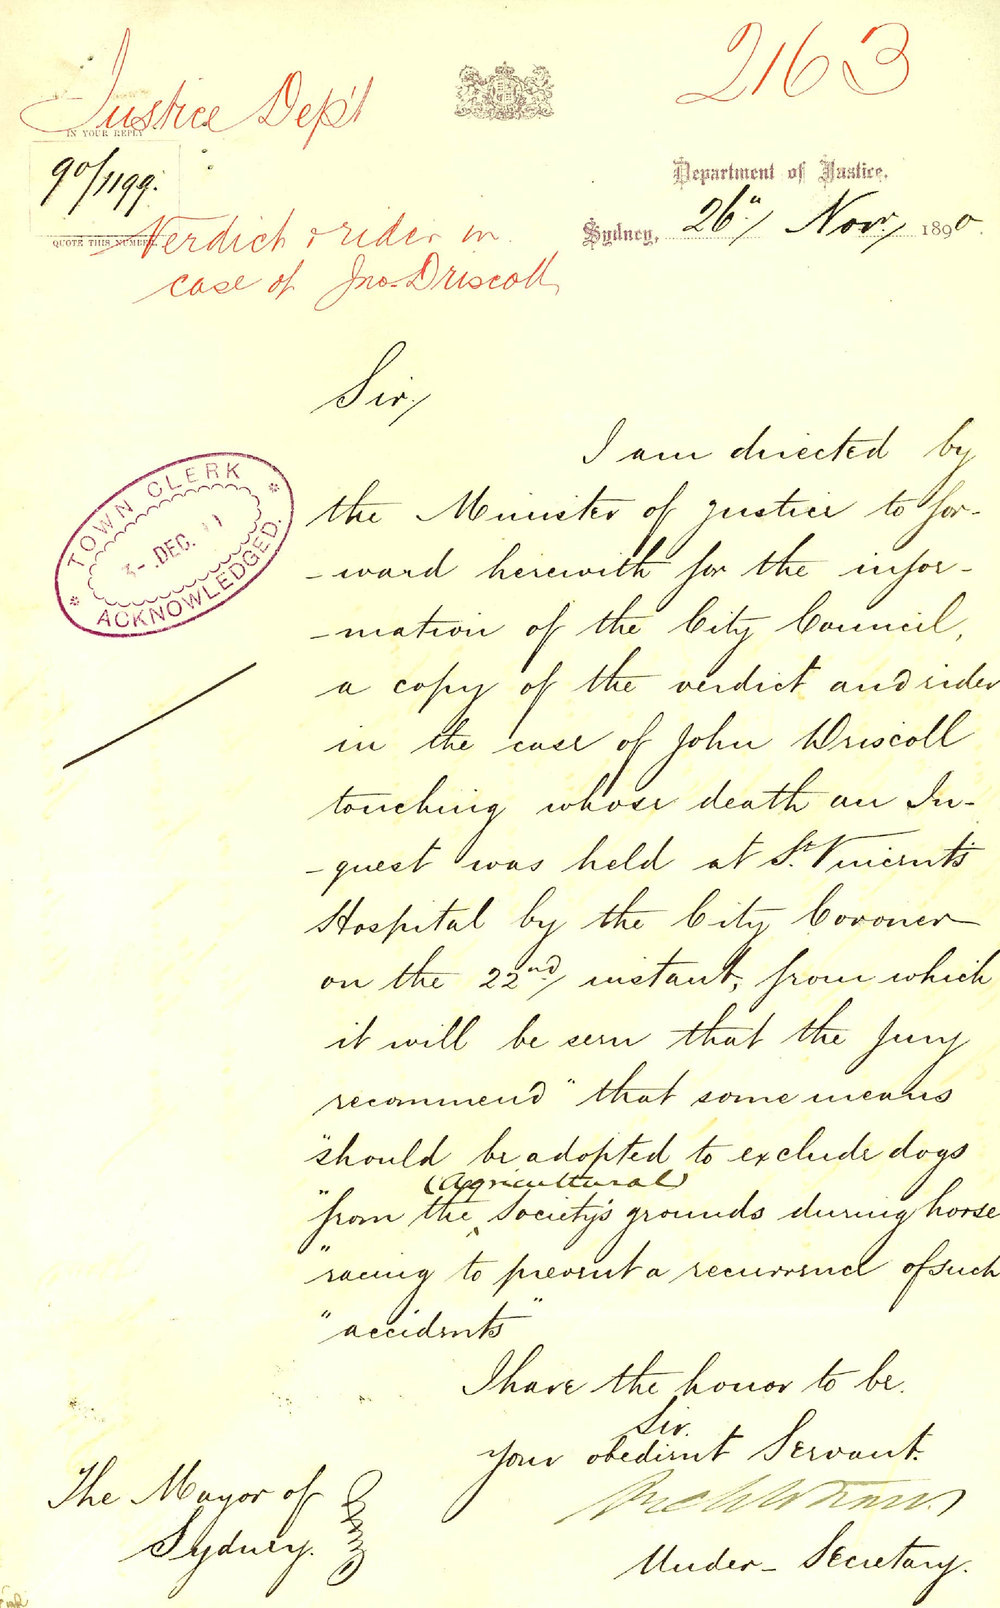 Justice Dep't
2163
IN YOUR REPLY
90/1199.
QUOTE THIS NUMBER.
Department of Justice,
Sydney, 26"/ Novr/ 1890.
Verdict & rider in
case of Jno. Driscoll
Sir,
I am directed by
the Minister of Justice to for-
-ward herewith for the infor-
-mation of the City Council,
a copy of the verdict and rider
in the case of John Driscoll
touching whose death an In-
-quest was held at St. Vincent's
Hospital by the City Coroner
on the 22nd/ instant, from which
it will be seen that the Jury
recommend "that some means
"should be adopted to exclude dogs
(Agricultural)
"from the Society's grounds during horse
"racing to prevent a recurrence of such
"accidents"
I have the honor to be.
Sir.
Your obedient Servant.
Under-Secretary.
The Mayor of
Sydney.
TOWN CLERK
3-.DEC.
ACKNOWLEDGED.